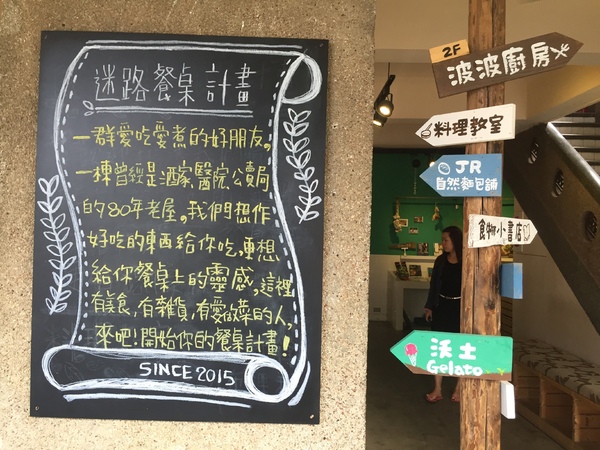 迷路餐桌計畫
一群愛吃愛煮的好朋友。
一棟曾經是酒家、醫院、公賣局
的80年老屋。我們想作
好吃的東西給你吃,更想
給你餐桌上的靈感。這裡
有美食,有雜貨,有愛做菜的人,
來吧!開始你的餐桌計畫!
SINCE 2015
2F
波波廚房
料理教室
JR
自然麵包舖
食物小書店
沃土
Gelato